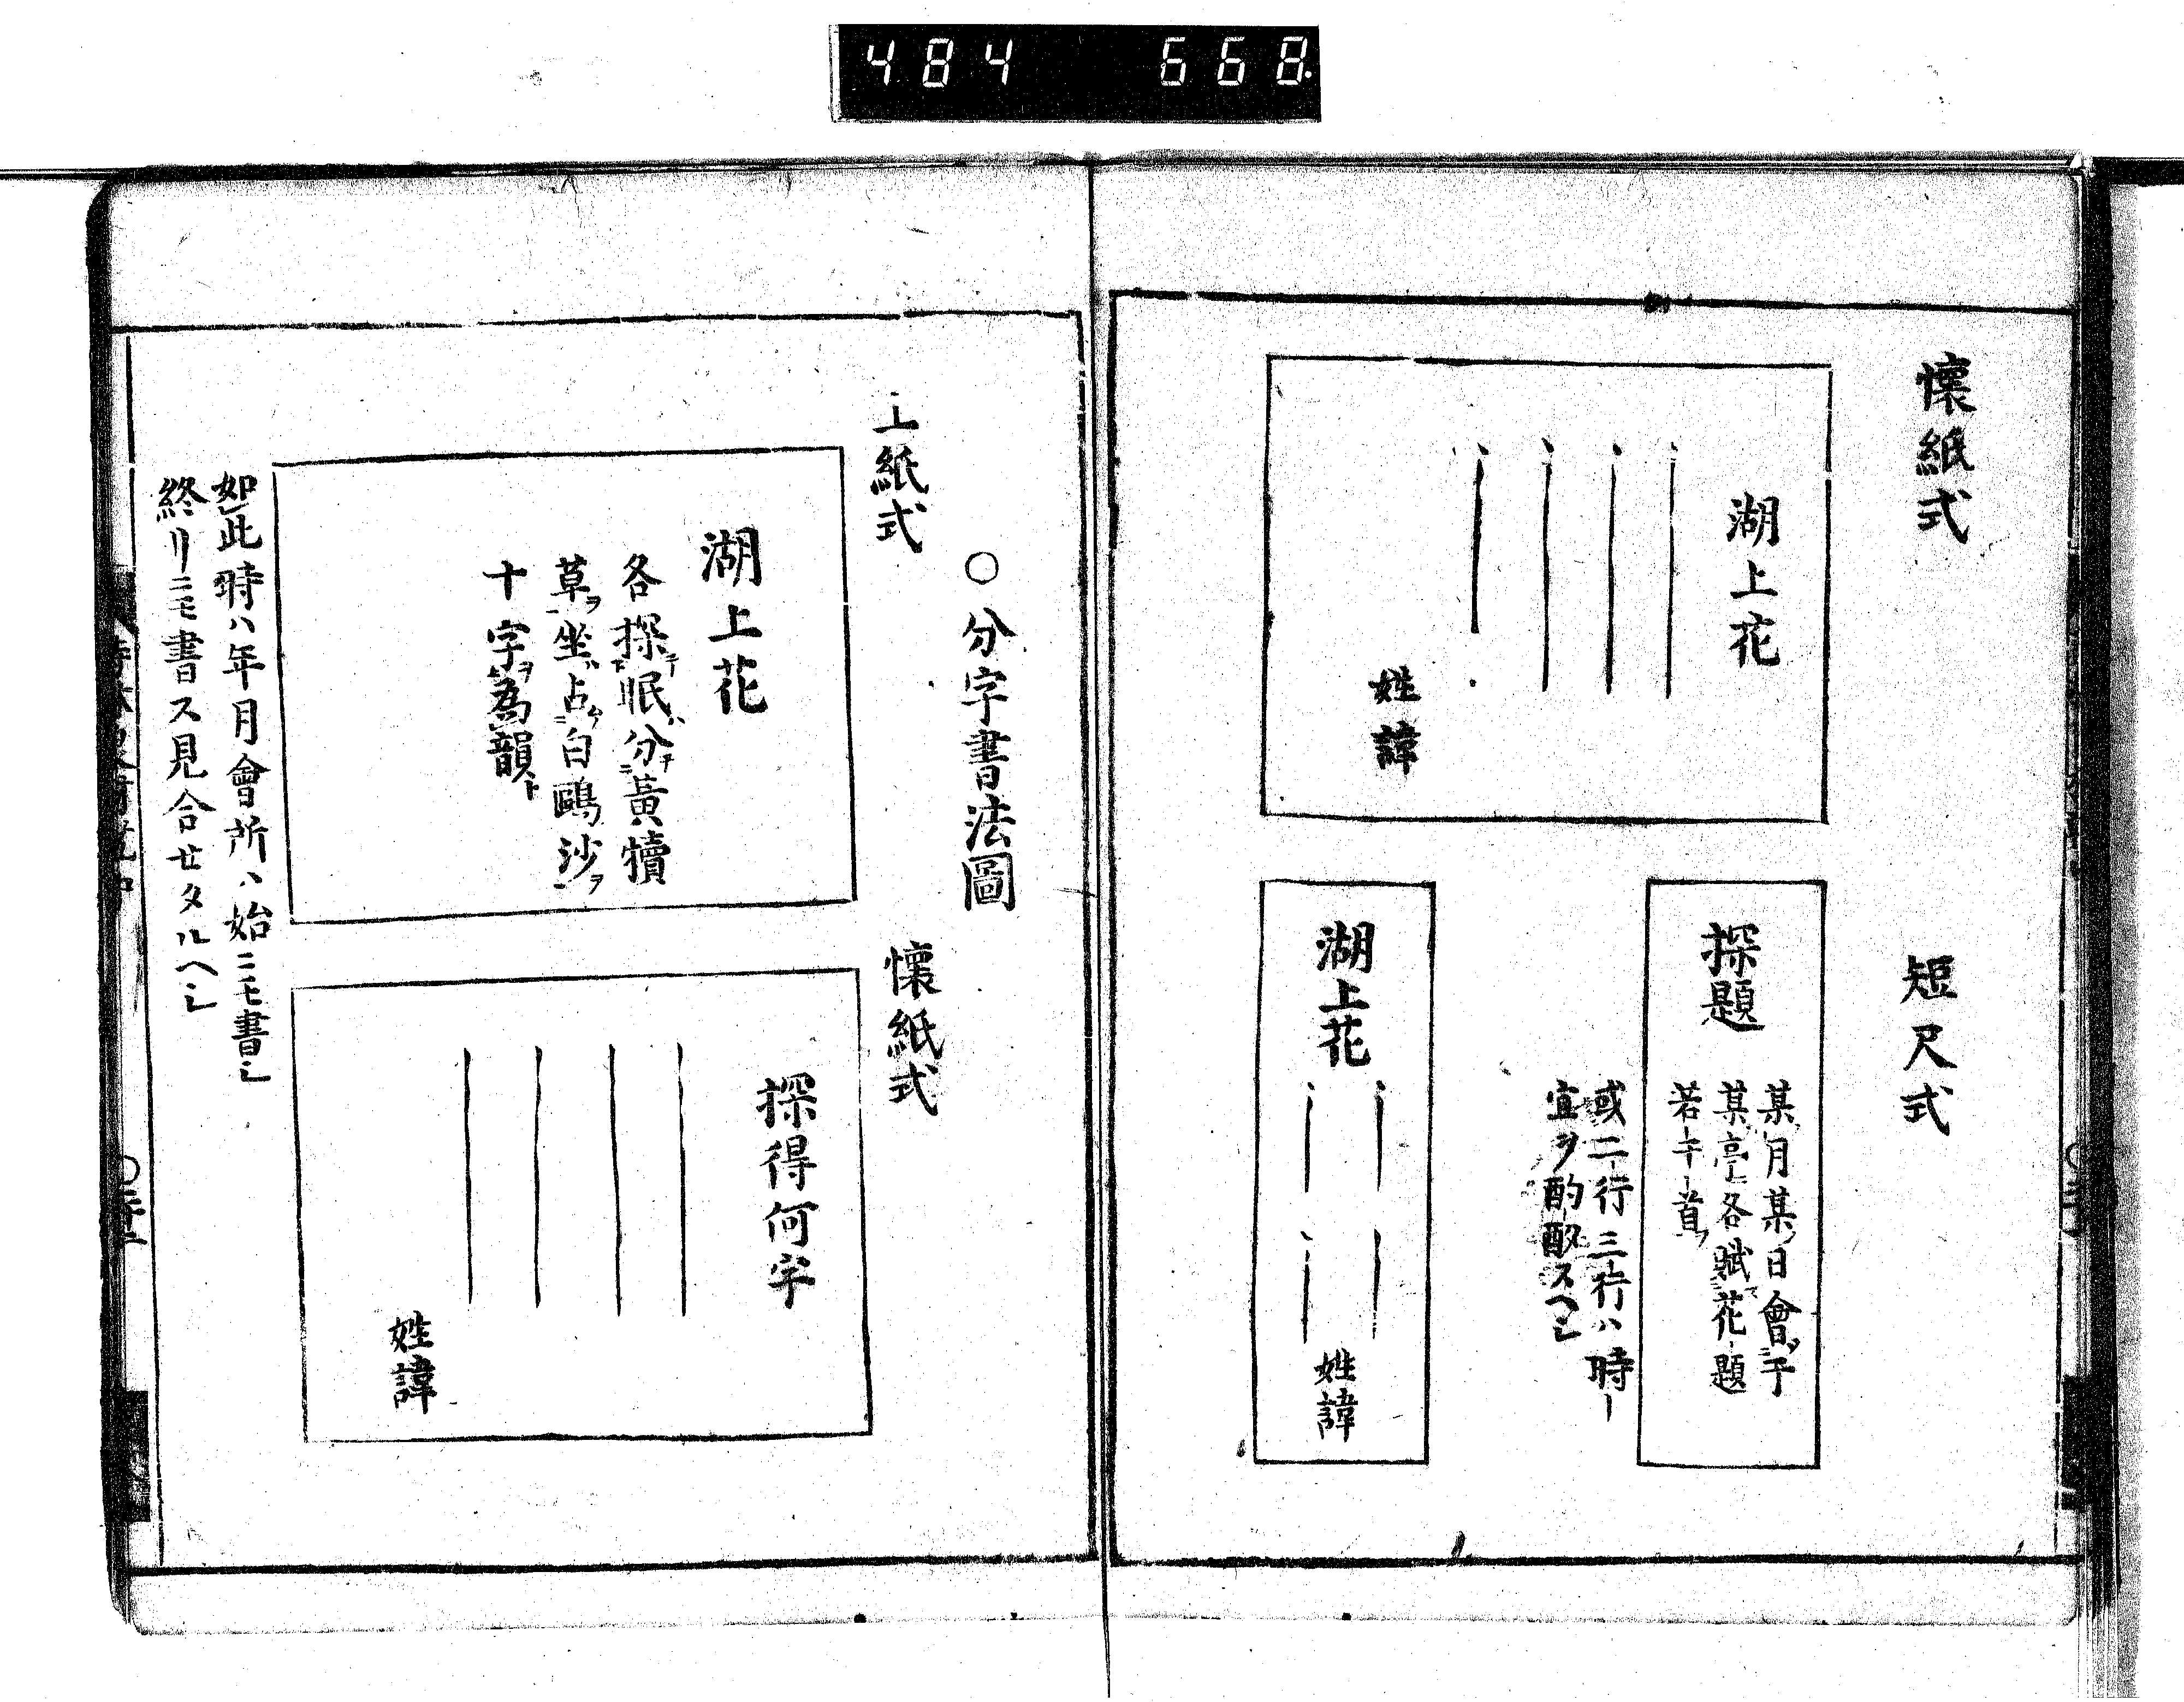 484 668.
懐紙式
湖上花
姓諱
短尺式
探題
某月某日會于
某亭各賦花題
若干首
或二行三行ハ時ー
宜ヲ酌酌スヘシ
湖上花
姓諱
○分字書法圖
上紙式
湖上花
各探眠分黃犢
草坐占白鷗沙
十字為韻
懐紙式
探得何字
姓諱
如此時ハ年月會所ハ始ニモ書シ
終リニモ書ス見合せタルヘシ